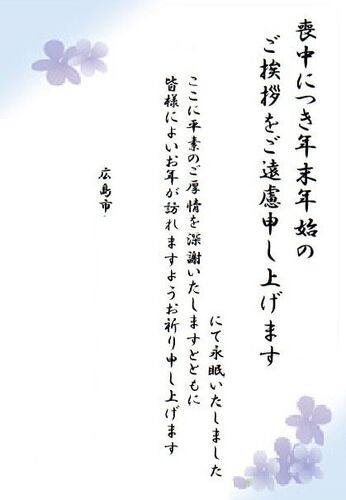 喪中につき年末年始の
ご挨拶をご遠慮申し上げます
にて永眠いたしました
ここに平素のご厚情を深謝いたしますとともに
皆様によいお年が訪れますようお祈り申し上げます
広島市